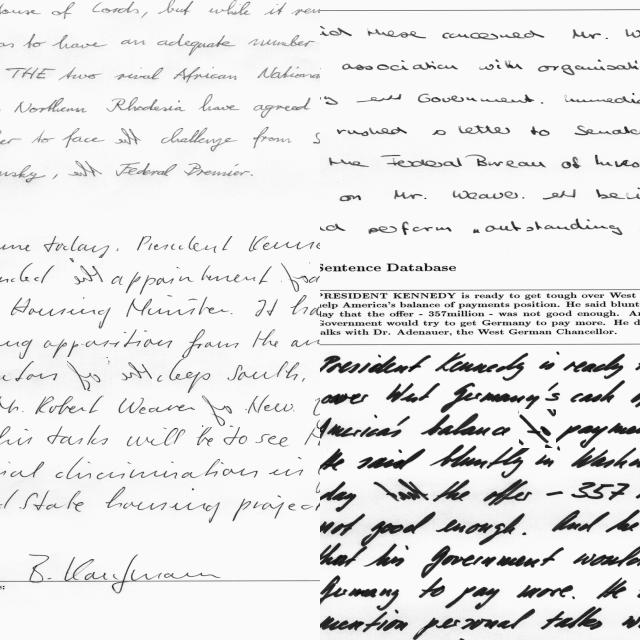 ouse of Lords, but while it rem
as to have an adequate number
THE two rival African Nationa
Northern Rhodesia have agreed
er to face challenge from S
nsky, Federal Premier.
me today. President Kenne
nded appointment
Housing Minister. It ha
ng opposition from the an
ators deep South,
Mr. Robert Weaver New
his tasks will be to see
ial discrimination in
d State housing project
B. Kaufmann
id these concerned Mr. W
association with organisati
Government. immedia
rushed a letter to Senato
the Federal Bureau of Inves
on Mr. Weaver. beli
nd perform outstanding
Sentence Database
PRESIDENT KENNEDY is ready to get tough over West
elp America's balance of payments position. He said blunt
ay that the offer - 357million - was not good enough. An
Government would try to get Germany to pay more. He d
alks with Dr. Adenauer, the West German Chancellor.
President Kennedy is ready
over West Germany's cash
America's balance paymen
He said bluntly in Washi
day the offer - 357
not good enough. And he
that his Government would
Germany to pay more. He
mention personal talks w